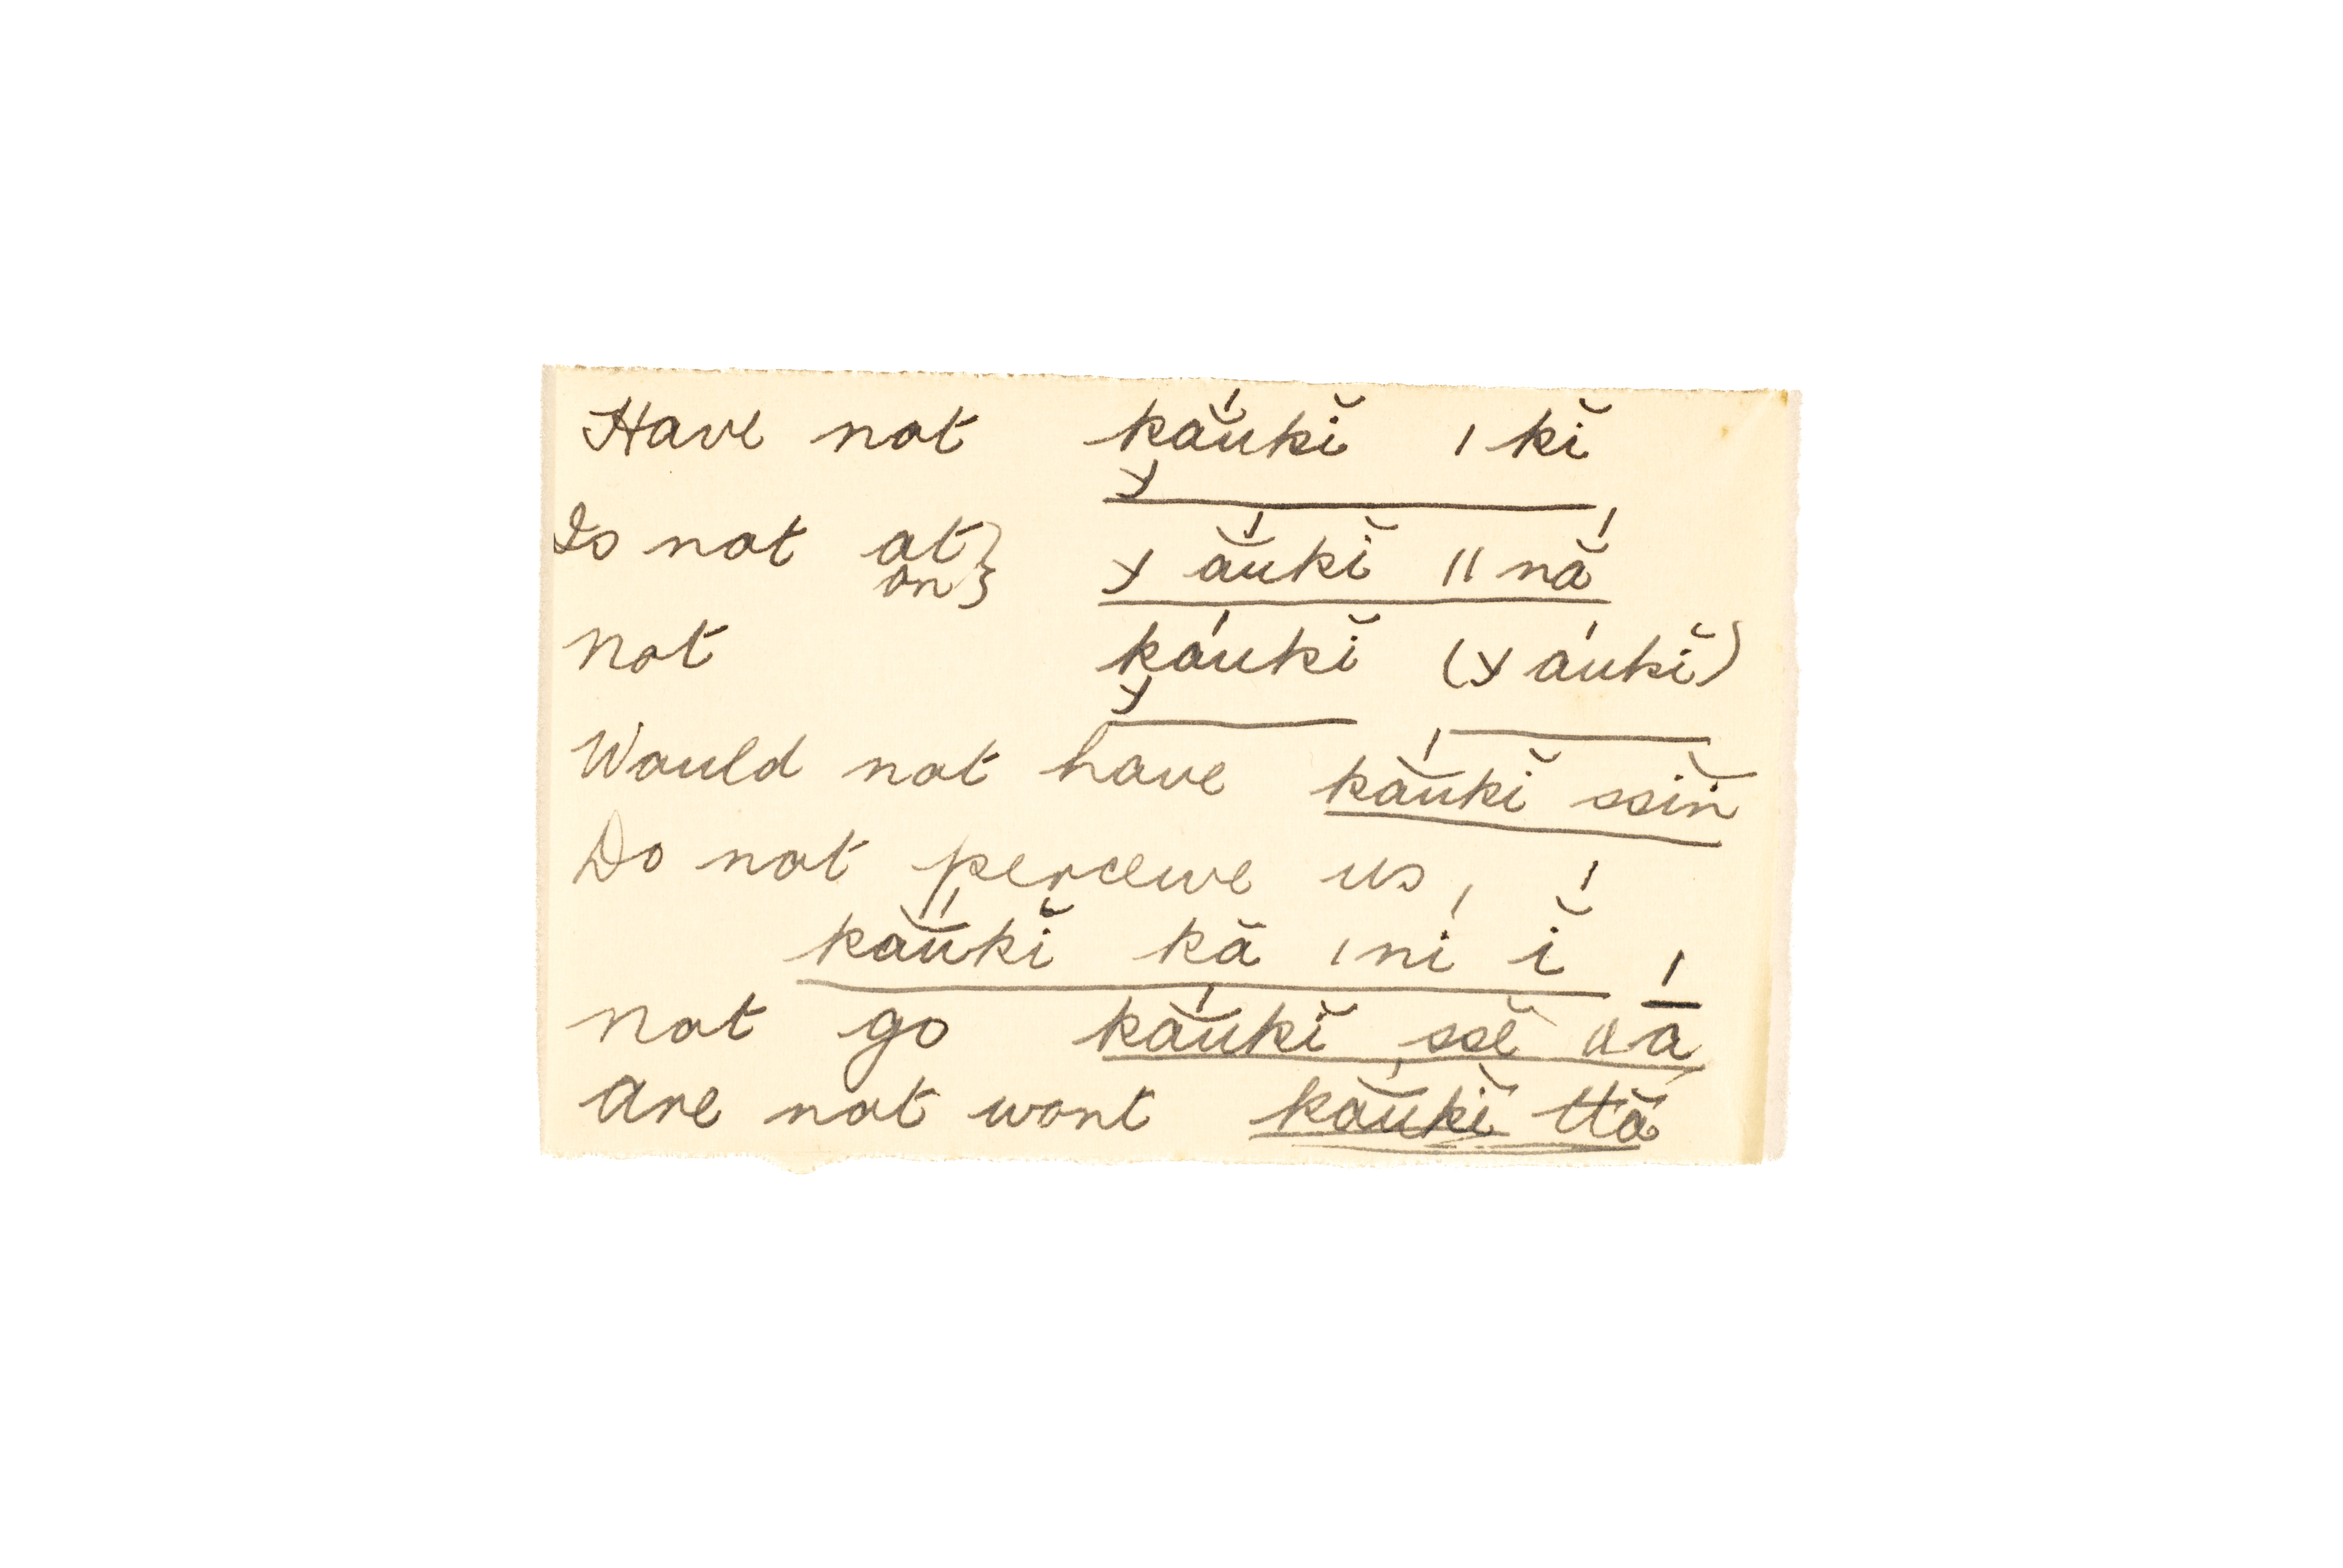 Have not kăúkĭ ˌkĭ
y
Is not at }
on } y ăúkĭ ııná
Not káukĭ (y áukĭ)
y
Would not have kăúkĭ ssĭn
Do not perceive us,
kăűkĭ kā ıní ĭ́
Not go kăúkĭ ssĕ ııá
Are not wont kăúkĭ ttă